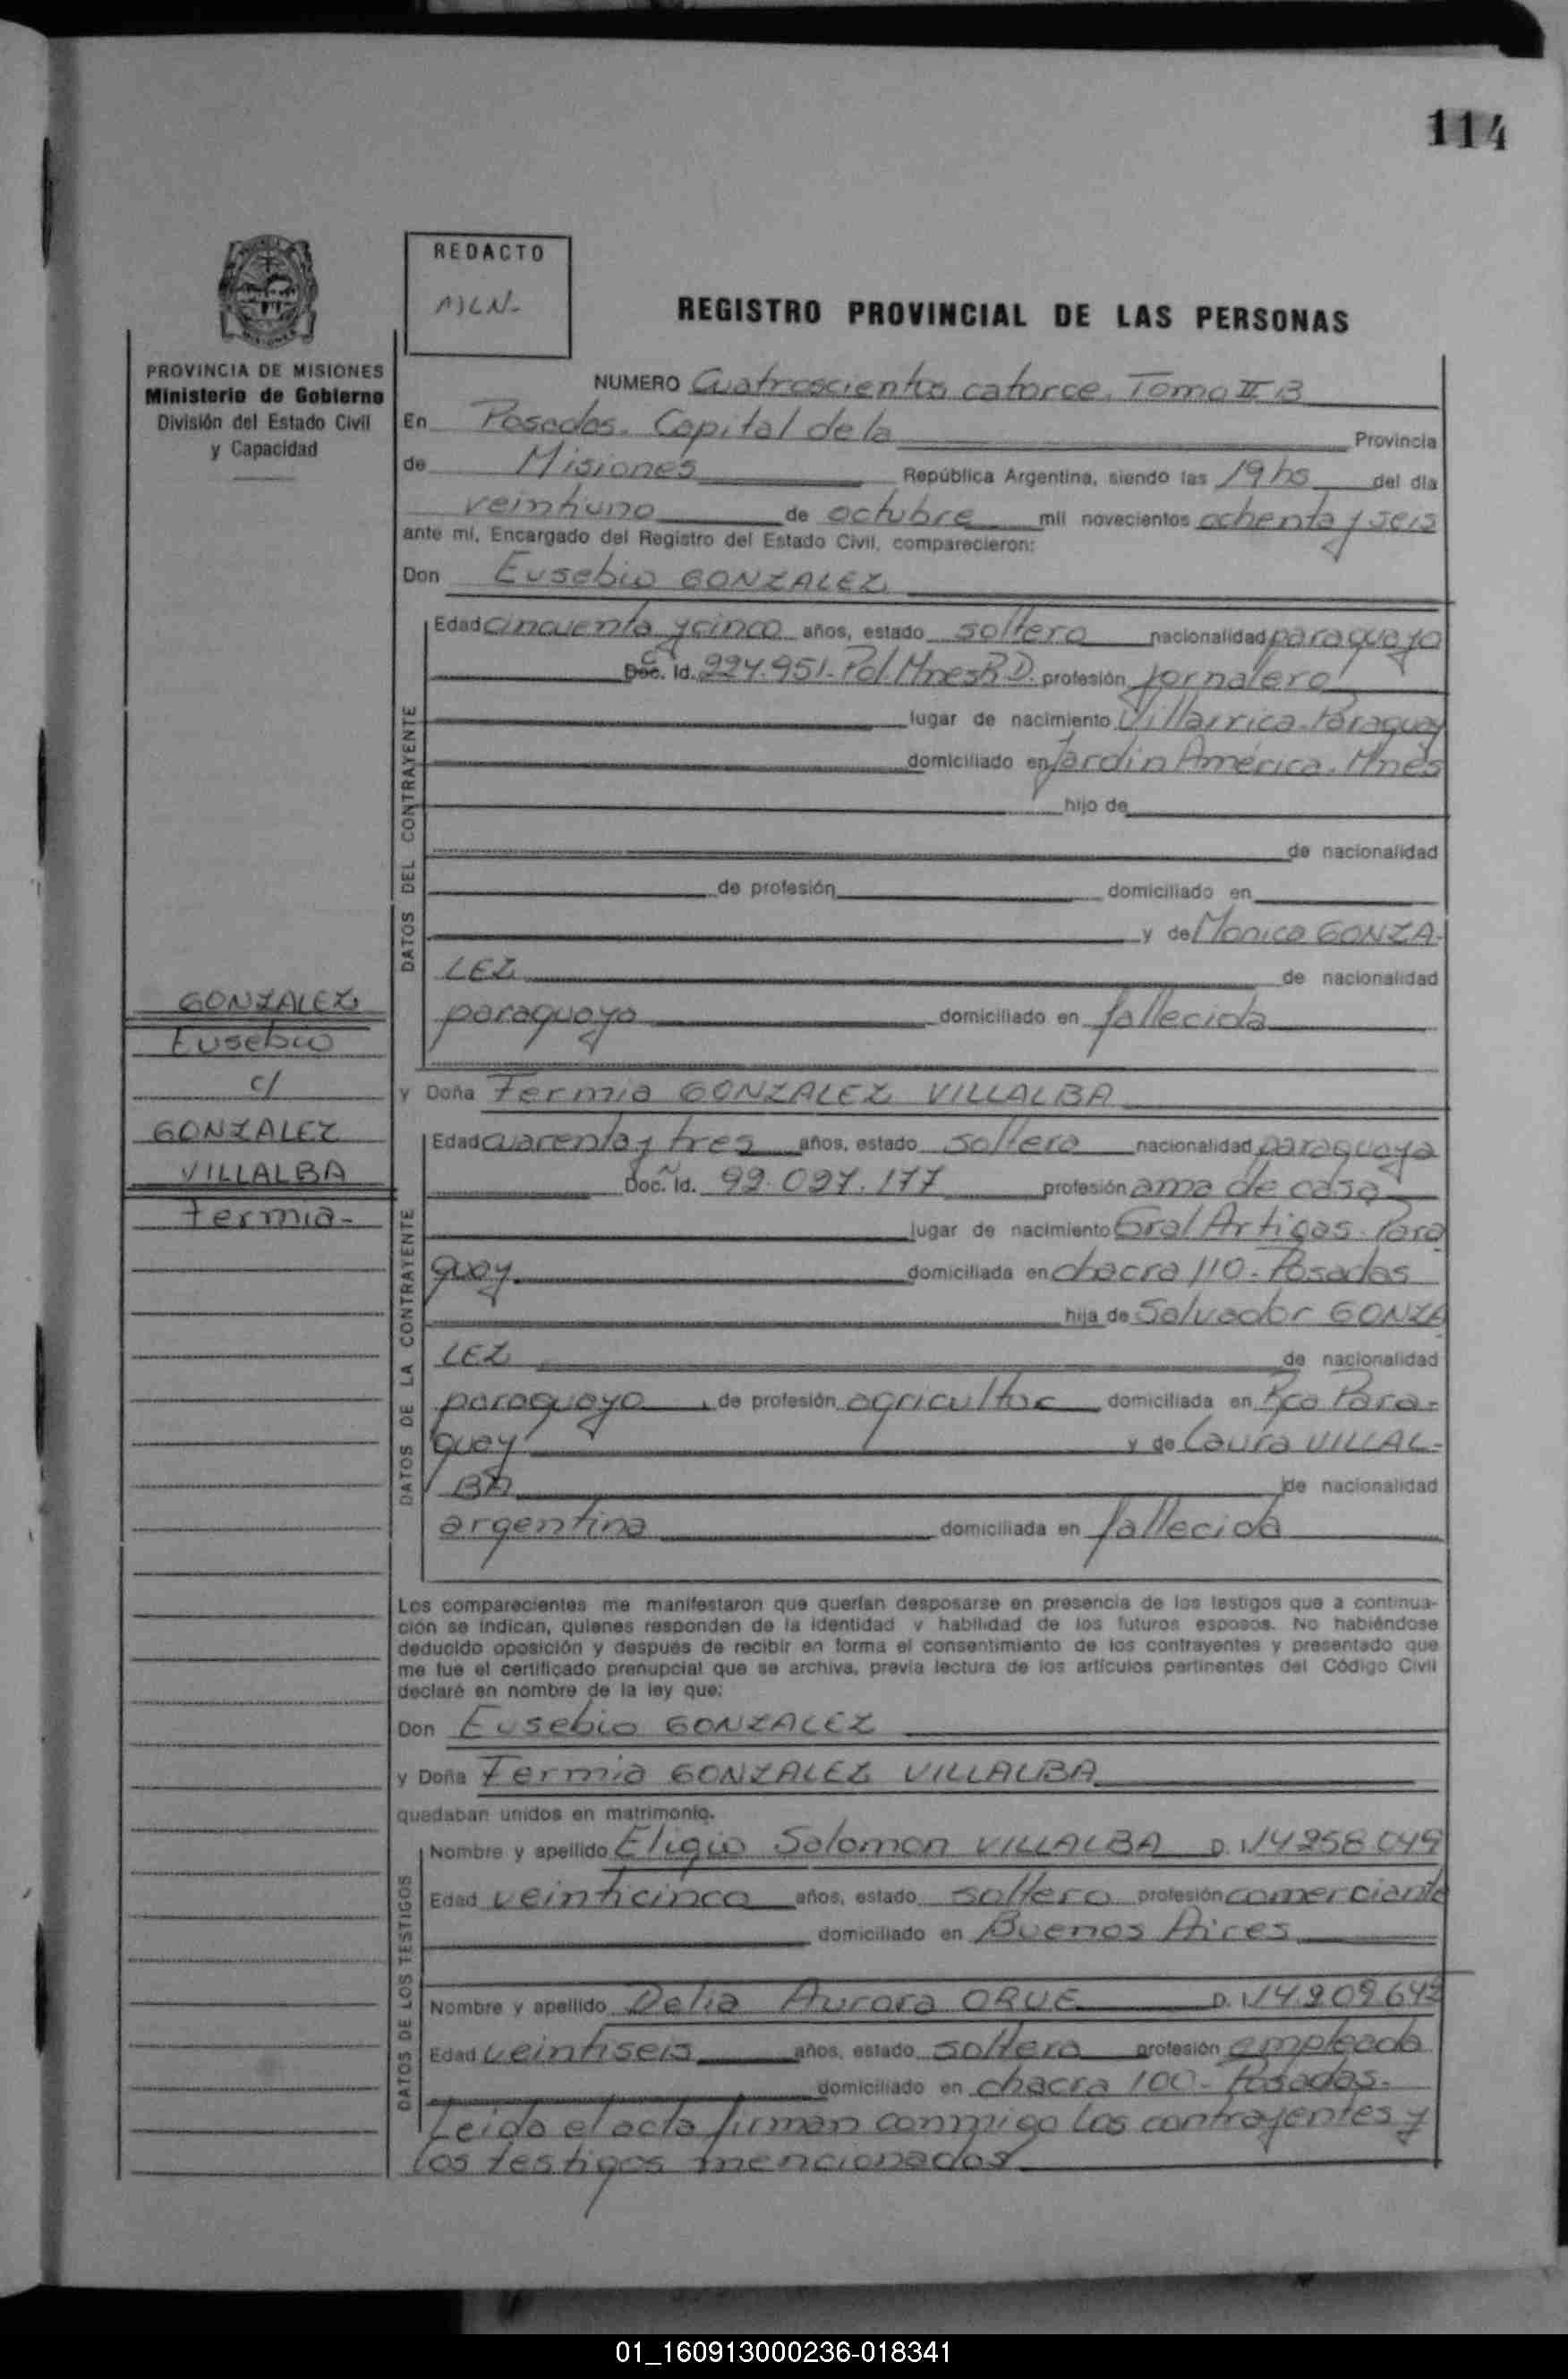 114
REDACTO
MLN-
REGISTRO PROVINCIAL DE LAS PERSONAS
PROVINCIA DE MISIONES
Ministerio de Gobierno
División del Estado Civil
y Capacidad
NUMERO Cuatroscientos catorce. Tomo II B
En Posadas. Capital de la Provincia
de Misiones República Argentina, siendo las 19 hs del día
veintiuno de octubre mil novecientos ochenta y seis
ante mí, Encargado del Registro del Estado Civil, comparecieron:
Don Eusebio GONZALEZ
DATOS DEL CONTRAYENTE
Edad cincuenta y cinco años, estado soltero nacionalidad paraguayo
Doc. Id. 224.951- Pol. Mnes R.D. profesión jornalero
lugar de nacimiento Villarrica-Paraguay
domiciliado en Jardin América. Mnes
hijo de
de nacionalidad
de profesión domiciliado en
y de Monica GONZA-
LEZ de nacionalidad
paraguaya domiciliado en fallecida
GONZALEZ
Eusebio
c/
GONZALEZ
VILLALBA
Fermia-
y Doña Fermia GONZALEZ VILLALBA
DATOS DE LA CONTRAYENTE
Edad cuarenta y tres años, estado soltera nacionalidad paraguaya
Doc. Id. 92.027.177 profesión ama de casa
lugar de nacimiento Gral Artigas. Para
guay domiciliada en chacra 110- Posadas
hija de Salvador GONZA
LEZ de nacionalidad
paraguayo, de profesión agricultor domiciliada en Rca Para-
guay y de Laura VILLAL-
BA de nacionalidad
argentina domiciliada en fallecida
Los comparecientes me manifestaron que querían desposarse en presencia de los testigos que a continua-
ción se indican, quienes responden de la identidad y habilidad de los futuros esposos. No habiéndose
deducido oposición y después de recibir en forma el consentimiento de los contrayentes y presentado que
me fue el certificado prenupcial que se archiva, previa lectura de los artículos pertinentes del Código Civil
declaré en nombre de la ley que:
Don Eusebio GONZALEZ
y Doña Fermia GONZALEZ VILLALBA
quedaban unidos en matrimonio.
DATOS DE LOS TESTIGOS
Nombre y apellido Eligio Solomon VILLALBA D.I. 14258.049
Edad veinticinco años, estado soltero profesión comerciante
domiciliado en Buenos Aires
Nombre y apellido Delia Aurora ORUE D.I. 14.209.642
Edad veintiseis años, estado soltera profesión empleada
domiciliado en chacra 100- Posadas-
Leida el acta firman conmigo los contrayentes y
los testigos mencionados
01_160913000236-018341